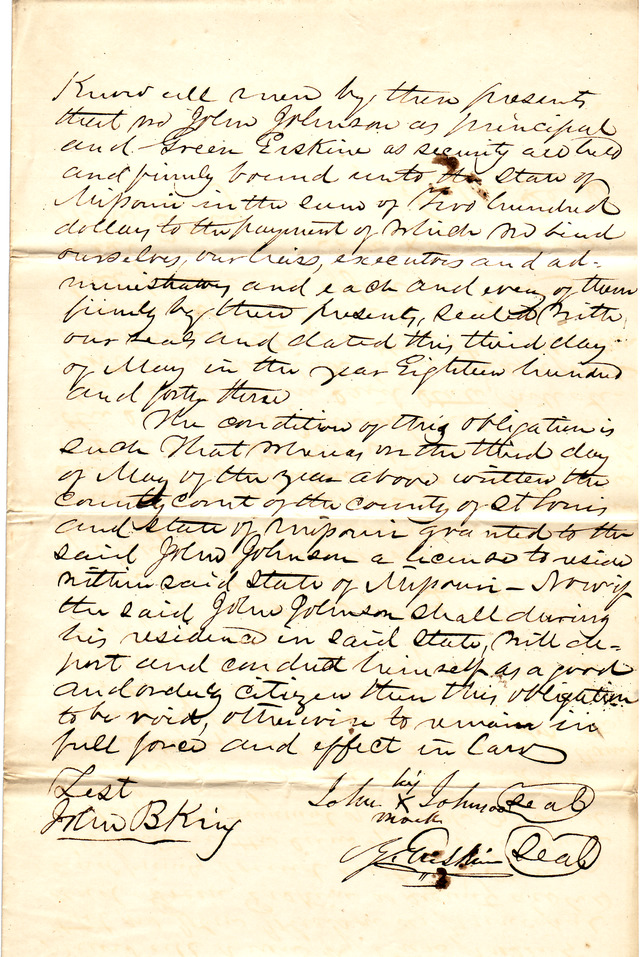 Know all men by these presents
that we John Johnson as principal
and Green Erskine as security are held
and firmly bound unto the State of
Missouri in the sum of Two hundred
dollars to the payment of which we bind
ourselves, our heirs, executors and ad-
ministrators and each and every of them
firmly by these presents, sealed with
our seals and dated this third day
of May in the year Eighteen hundred
and forty three
The condition of this obligation is
such That whereas on the third day
of May of the year above written the
county court of the county of St Louis
and state of Missouri granted to the
said John Johnson a license to reside
within said State of Missouri - Now if
the said John Johnson shall during
his residence in said state, will de-
port and conduct himself as a good
and orderly citizen then this obligation
to be void, otherwise to remain in
full force and effect in Law
Test
John B King
his
John X Johnson seal
mark
G. Erskine seal